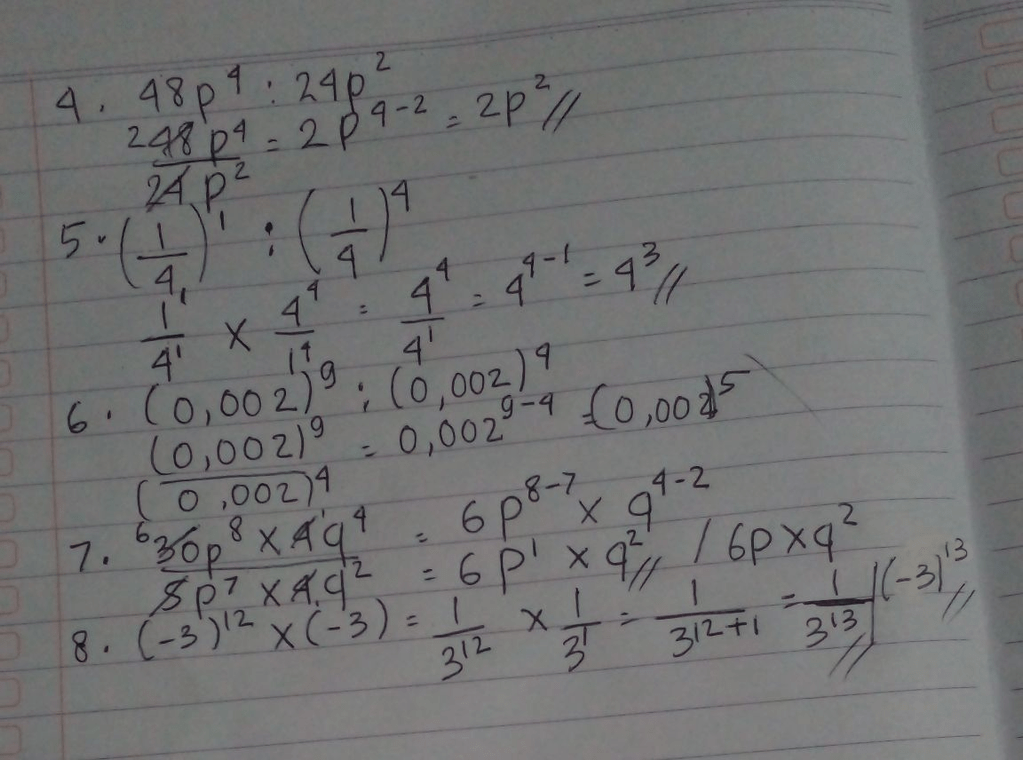 4. 48p⁴ : 24p²
2 48p⁴/24p² = 2p⁴⁻² = 2p² //
5. (1/4)¹ : (1/4)⁴
1¹/4¹ × 4⁴/1⁴ = 4⁴/4¹ = 4⁴⁻¹ = 4³ //
6. (0,002)⁹ : (0,002)⁴
(0,002)⁹/(0,002)⁴ = 0,002⁹⁻⁴ = (0,002)⁵
7. 6 30p⁸ × 4q⁴/5p⁷ × 4q² = 6p⁸⁻⁷ × q⁴⁻²
= 6p¹ × q² // / 6p × q²
8. (-3)¹² × (-3) = 1/3¹² × 1/3¹ = 1/3¹²⁺¹ = 1/3¹³ // | (-3)¹³ //